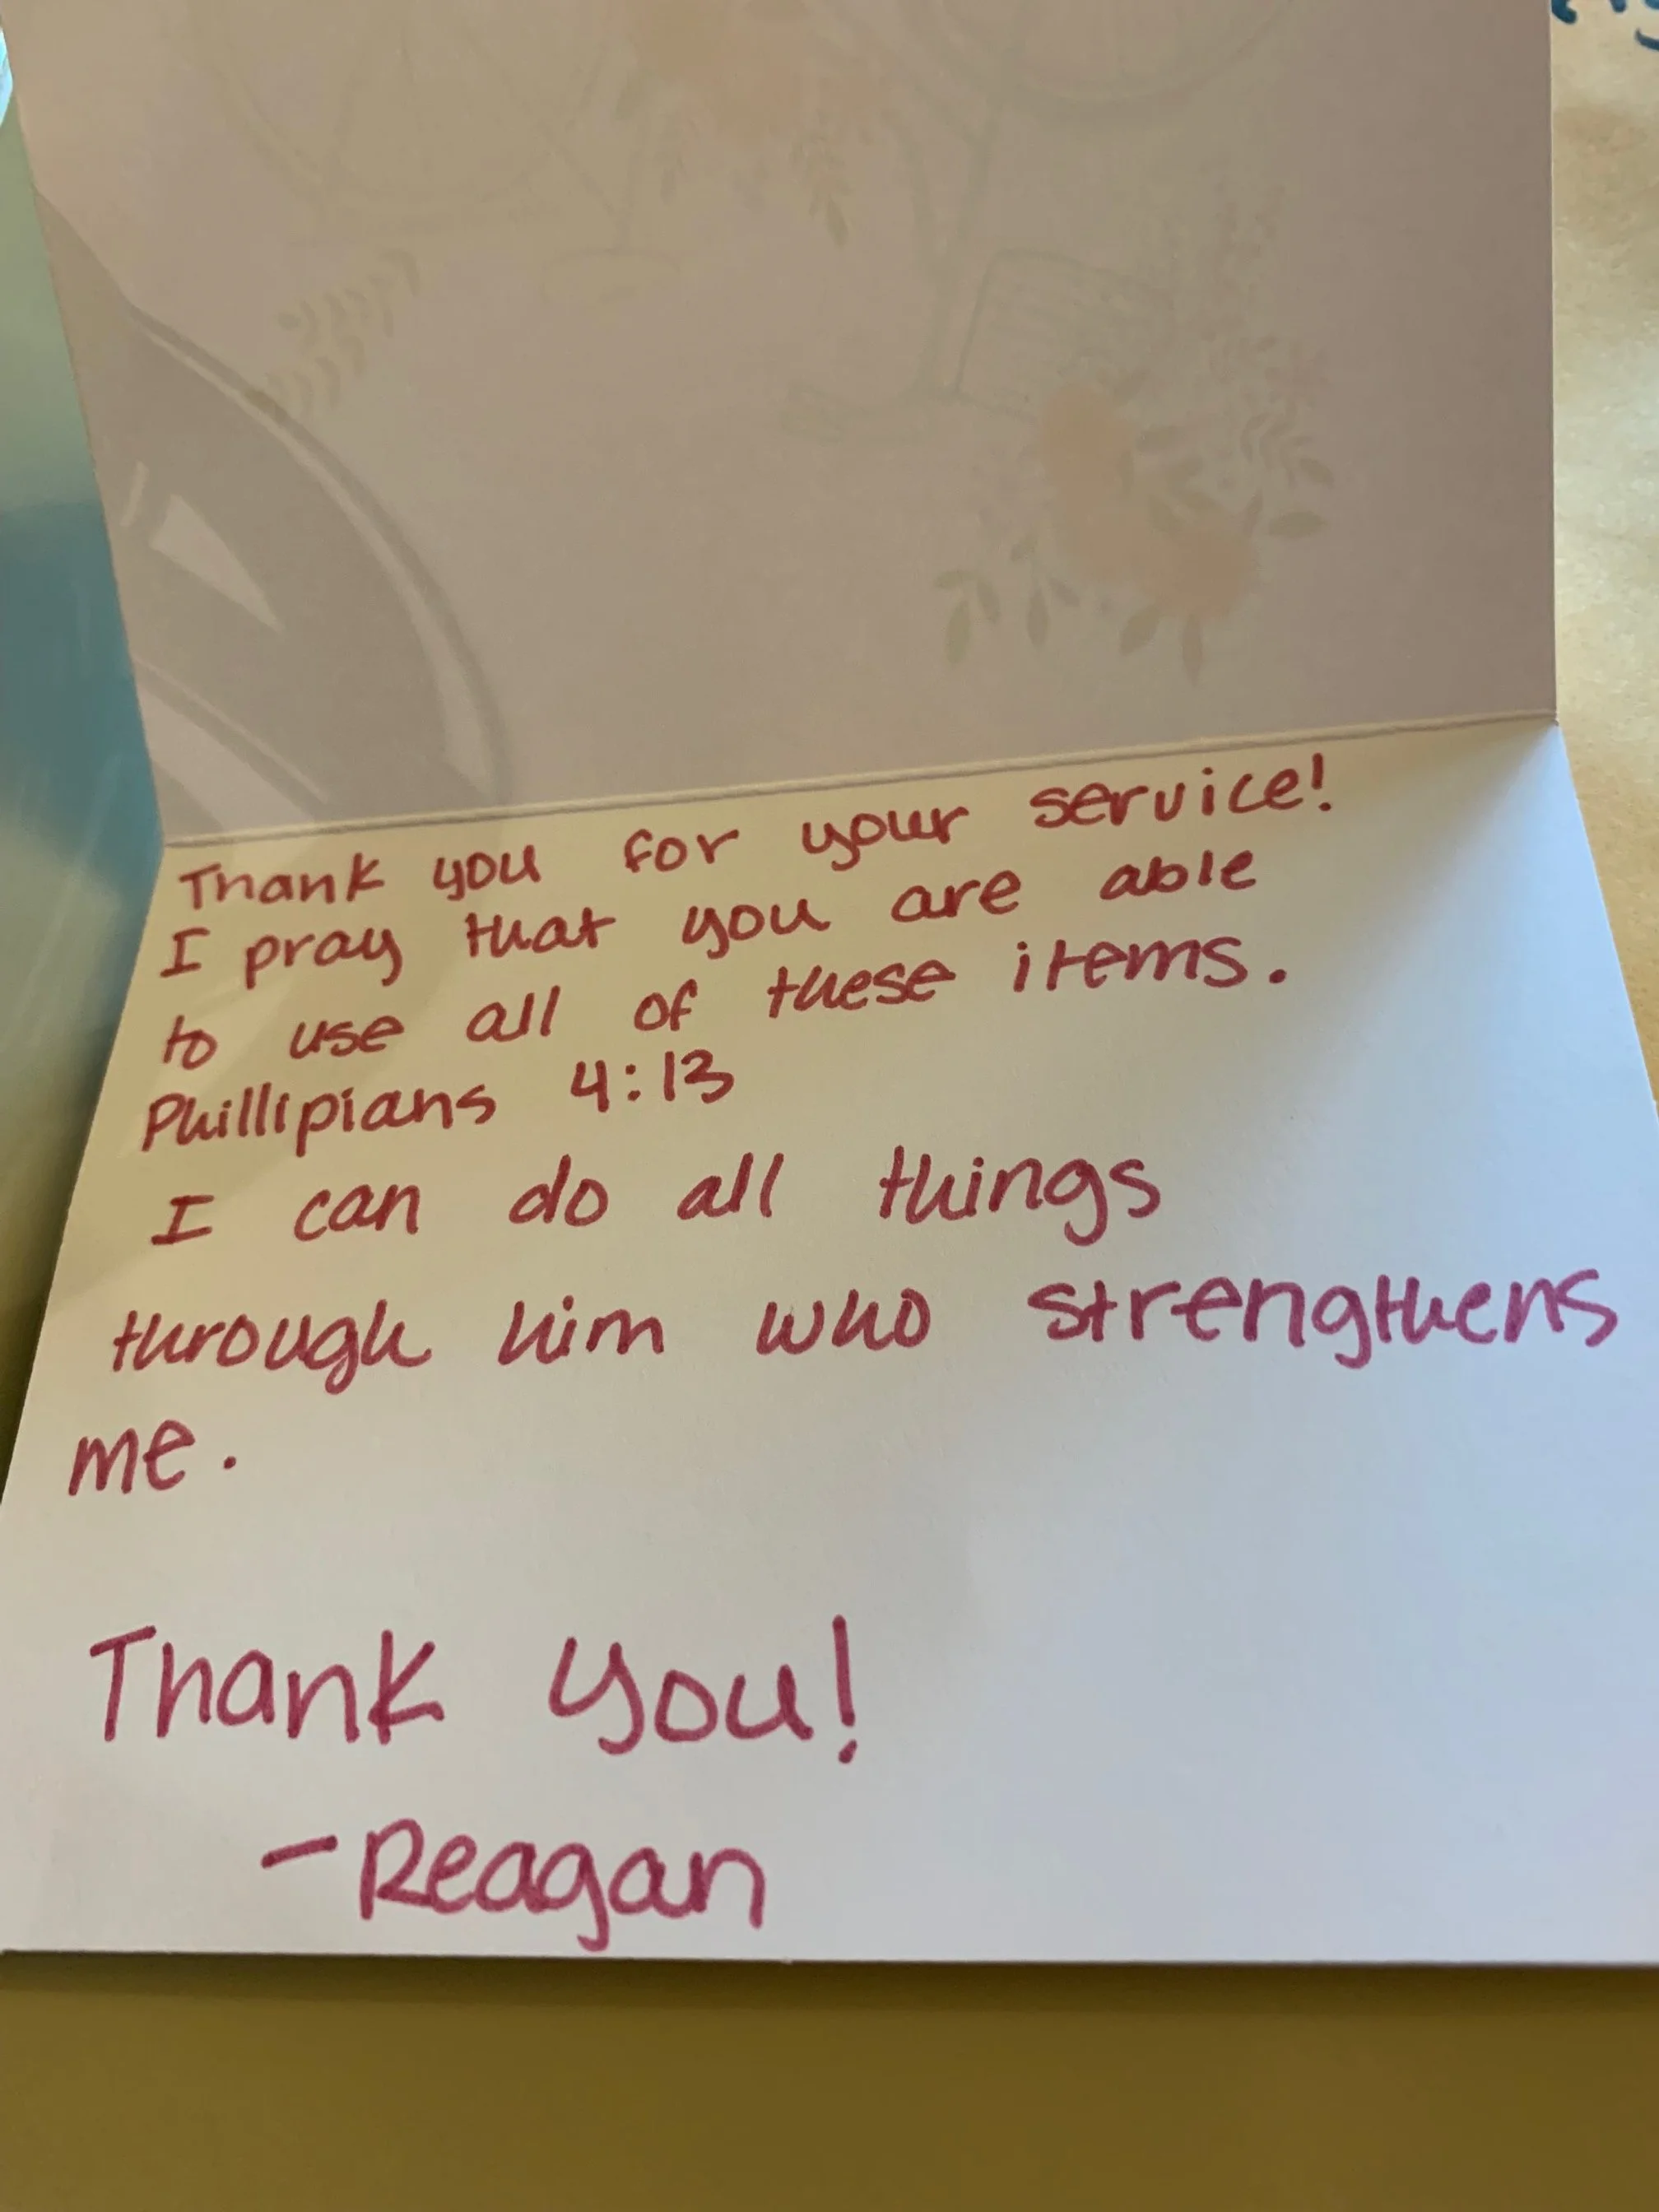 Thank you for your service!
I pray that you are able
to use all of these items.
Phillipians 4:13
I can do all things
through him who strengthens
me.
Thank you!
-Reagan